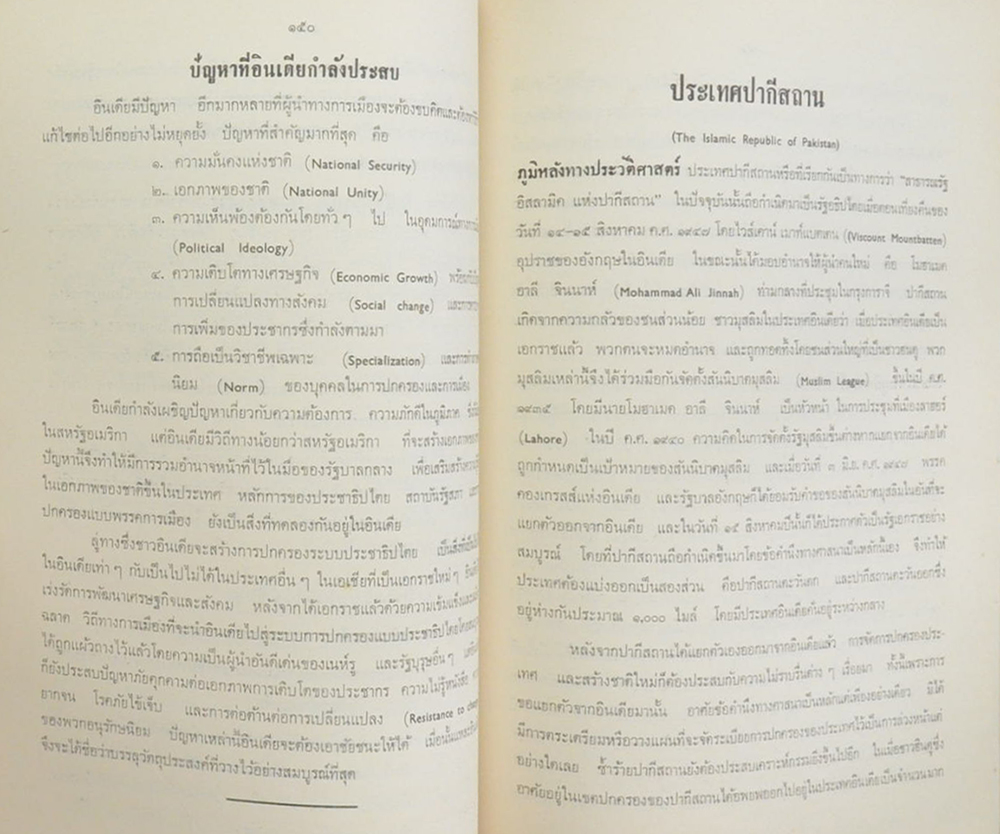 ๑๕๐
ปัญหาที่อินเดียกำลังประสบ
อินเดียมีปัญหา อีกมากหลายที่ผู้นำทางการเมืองจะต้องขบคิดและต้องหาวิธี
แก้ไขต่อไปอีกอย่างไม่หยุดยั้ง ปัญหาที่สำคัญมากที่สุด คือ
๑. ความมั่นคงแห่งชาติ (National Security)
๒. เอกภาพของชาติ (National Unity)
๓. ความเห็นพ้องต้องกันโดยทั่ว ๆ ไป ในอุดมการณ์ทางการเมือง
(Political Ideology)
๔. ความเติบโตทางเศรษฐกิจ (Economic Growth)
การเปลี่ยนแปลงทางสังคม (Social change)
การเพิ่มของประชากรซึ่งกำลังตามมา
๕. การถือเป็นวิชาชีพเฉพาะ (Specialization)
นิยม (Norm) ของบุคคลในการปกครองและการเมือง
อินเดียกำลังเผชิญปัญหาเกี่ยวกับความต้องการ ความภักดีในภูมิภาค
ในสหรัฐอเมริกา แต่อินเดียมีวิถีทางน้อยกว่าสหรัฐอเมริกา ที่จะสร้างเอกภาพ
ปัญหานี้จึงทำให้มีการรวมอำนาจหน้าที่ไว้ในมือของรัฐบาลกลาง เพื่อเสริมสร้าง
ในเอกภาพของชาติขึ้นในประเทศ หลักการของประชาธิปไตย สถาบันรัฐสภา
ปกครองแบบพรรคการเมือง ยังเป็นสิ่งที่ทดลองกันอยู่ในอินเดีย
ลู่ทางซึ่งชาวอินเดียจะสร้างการปกครองระบบประชาธิปไตย
ในอินเดียเท่า ๆ กับเป็นไปไม่ได้ในประเทศอื่น ๆ ในเอเชียที่เป็นเอกราชใหม่ ๆ
เร่งรัดการพัฒนาเศรษฐกิจและสังคม หลังจากได้เอกราชแล้วด้วยความเข้มแข็งและ
ฉลาด วิถีทางการเมืองที่จะนำอินเดียไปสู่ระบบการปกครองแบบประชาธิปไตย
ได้ถูกแผ้วถางไว้แล้วโดยความเป็นผู้นำอันดีเด่นของเนห์รู และรัฐบุรุษอื่น ๆ
ก็ยังประสบปัญหาภัยคุกคามต่อเอกภาพการเติบโตของประชากร ความไม่รู้หนังสือ
ยากจน โรคภัยไข้เจ็บ และการต่อต้านต่อการเปลี่ยนแปลง (Resistance to change)
ของพวกอนุรักษนิยม ปัญหาเหล่านี้อินเดียจะต้องเอาชัยชนะให้ได้
จึงจะได้ชื่อว่าบรรลุวัตถุประสงค์ที่วางไว้อย่างสมบูรณ์ที่สุด
ประเทศปากีสถาน
(The Islamic Republic of Pakistan)
ภูมิหลังทางประวัติศาสตร์ ประเทศปากีสถานหรือที่เรียกกันเป็นทางการว่า "สาธารณรัฐ
อิสลามิค แห่งปากีสถาน" ในปัจจุบันนั้นถือกำเนิดมาเป็นรัฐอธิปไตยเมื่อตอนเที่ยงคืนของ
วันที่ ๑๔–๑๕ สิงหาคม ค.ศ. ๑๙๔๗ โดยไวส์เคาน์ เมาท์แบตเตน ((Viscount Mountbatten)
อุปราชของอังกฤษในอินเดีย ในขณะนั้นได้มอบอำนาจให้ผู้นำคนใหม่ คือ โมฮาเมด
อาลี จินนาห์ (Mohammad Ali Jinnah) ท่ามกลางที่ประชุมในกรุงการาจี ปากีสถาน
เกิดจากความกลัวของชนส่วนน้อย ชาวมุสลิมในประเทศอินเดียว่า เมื่อประเทศอินเดียเป็น
เอกราชแล้ว พวกตนจะหมดอำนาจ และถูกทอดทิ้งโดยชนส่วนใหญ่ที่เป็นชาวฮินดู พวก
มุสลิมเหล่านี้จึงได้ร่วมมือกันจัดตั้งสันนิบาตมุสลิม (Muslim League) ขึ้นในปี ค.ศ.
๑๙๓๕ โดยมีนายโมฮาเมด อาลี จินนาห์ เป็นหัวหน้า ในการประชุมที่เมืองลาฮอร์
(Lahore) ในปี ค.ศ. ๑๙๔๐ ความคิดในการจัดตั้งรัฐมุสลิมขึ้นต่างหากแยกจากอินเดียได้
ถูกกำหนดเป็นเป้าหมายของสันนิบาตมุสลิม และเมื่อวันที่ ๓ มิ.ย. ค.ศ. ๑๙๔๗ พรรค
คองเกรสส์แห่งอินเดีย และรัฐบาลอังกฤษก็ได้ยอมรับคำขอของสันนิบาตมุสลิมในอันที่จะ
แยกตัวออกจากอินเดีย และในวันที่ ๑๕ สิงหาคมปีนั้นก็ได้ประกาศตัวเป็นรัฐเอกราชอย่าง
สมบูรณ์ โดยที่ปากีสถานถือกำเนิดขึ้นมาโดยข้อคำนึงทางศาสนาเป็นหลักนี้เอง จึงทำให้
ประเทศต้องแบ่งออกเป็นสองส่วน คือปากีสถานตะวันตก และปากีสถานตะวันออกซึ่ง
อยู่ห่างกันประมาณ ๑,๐๐๐ ไมล์ โดยมีประเทศอินเดียคั่นอยู่ระหว่างกลาง
หลังจากปากีสถานได้แยกตัวเองออกมาจากอินเดียแล้ว การจัดการปกครองประ-
เทศ และสร้างชาติใหม่ก็ต้องประสบกับความไม่ราบรื่นต่าง ๆ เรื่อยมา ทั้งนี้เพราะการ
ขอแยกตัวจากอินเดียมานั้น อาศัยข้อคำนึงทางศาสนาเป็นหลักแต่เพียงอย่างเดียว มิได้
มีการตระเตรียมหรือวางแผนที่จะจัดระเบียบการปกครองของประเทศไว้เป็นการล่วงหน้าแต่
อย่างใดเลย ซ้ำร้ายปากีสถานยังต้องประสบเคราะห์กรรมยิ่งขึ้นไปอีก ในเมื่อชาวฮินดูซึ่ง
อาศัยอยู่ในเขตปกครองของปากีสถานได้อพยพออกไปอยู่ในประเทศอินเดียเป็นจำนวนมาก